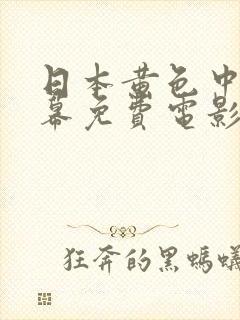 日本黄色中
幕免费電影
狂奔的黑螞蟻